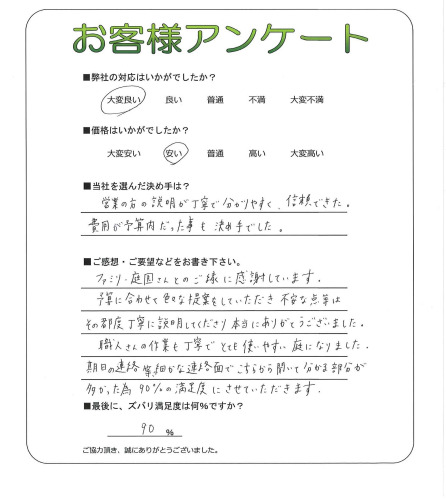 お客様アンケート
■弊社の対応はいかがでしたか？
大変良い 良い 普通 不満 大変不満
■価格はいかがでしたか？
大変安い 安い 普通 高い 大変高い
■当社を選んだ決め手は？
営業の方の説明が丁寧で分かりやすく、信頼できた。
費用が予算内だった事も決め手でした。
■ご感想・ご要望などをお書き下さい。
ファミリー庭園さんとのご縁に感謝しています。
予算に合わせて色々な提案をしていただき 不安な点等は
その都度丁寧に説明してくださり本当にありがとうございました。
職人さんの作業も丁寧でとても使いやすい庭になりました。
期日の連絡等、細かな連絡面でこちらから聞いて分かる部分が
多かった為90%の満足度にさせていただきます。
■最後に、ズバリ満足度は何%ですか？
90 %
ご協力頂き、誠にありがとうございました。